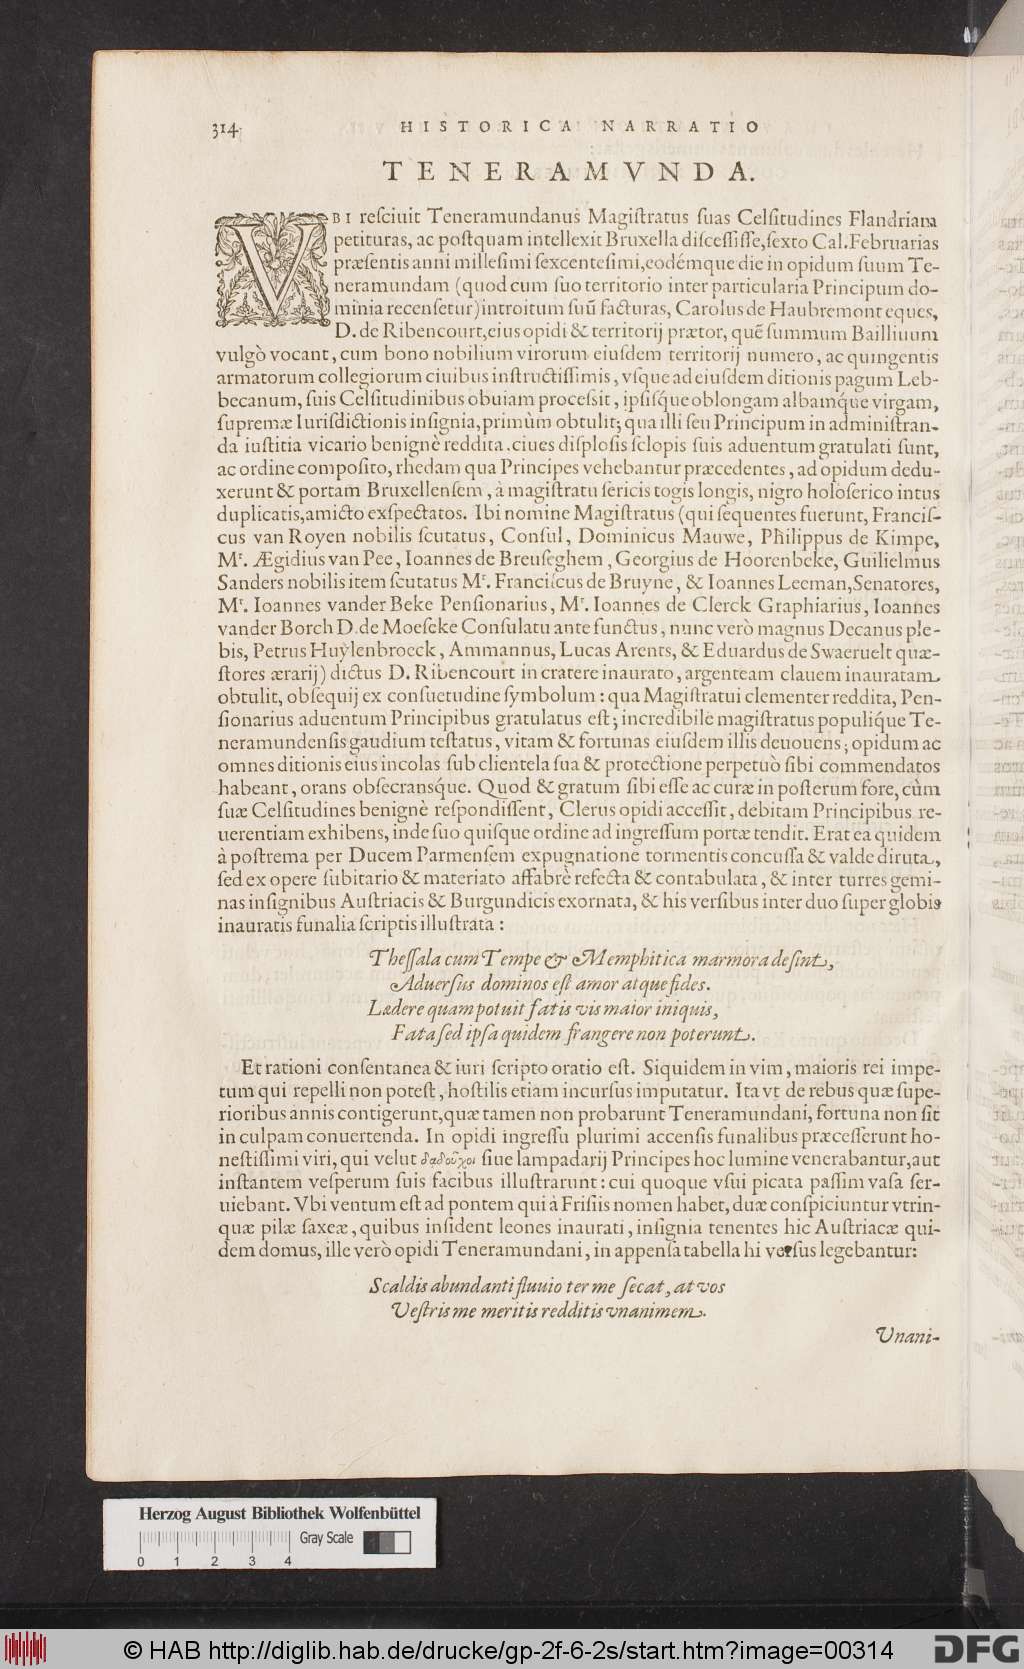 314 HISTORICA NARRATIO
TENERAMVNDA.
VBI resciuit Teneramundanus Magistratus suas Celsitudines Flandriam
petituras, ac postquam intellexit Bruxella discessisse, sexto Cal. Februarias
præsentis anni millesimi sexcentesimi, eodémque die in opidum suum Te-
neramundam (quod cum suo territorio inter particularia Principum do-
minia recensetur) introitum suū facturas, Carolus de Haubremont eques,
D. de Ribencourt, eius opidi & territorij prætor, quē summum Bailliuum
vulgò vocant, cum bono nobilium virorum eiusdem territorij numero, ac quingentis
armatorum collegiorum ciuibus instructissimis, vsque ad eiusdem ditionis pagum Leb-
becanum, suis Celsitudinibus obuiam processit, ipsisq́ue oblongam albamq́ue virgam,
supremæ Iurisdictionis insignia, primùm obtulit; qua illi seu Principum in administran-
da iustitia vicario benignè reddita. ciues displosis sclopis suis aduentum gratulati sunt,
ac ordine composito, rhedam qua Principes vehebantur præcedentes, ad opidum dedu-
xerunt & portam Bruxellensem, à magistratu sericis togis longis, nigro holoserico intus
duplicatis, amicto exspectatos. Ibi nomine Magistratus (qui sequentes fuerunt, Francis-
cus van Royen nobilis scutatus, Consul, Dominicus Mauwe, Philippus de Kimpe,
Mr. Ægidius van Pee, Ioannes de Breuseghem, Georgius de Hoorenbeke, Guilielmus
Sanders nobilis item scutatus Mr. Franciscus de Bruyne, & Ioannes Leeman, Senatores,
Mr. Ioannes vander Beke Pensionarius, Mr. Ioannes de Clerck Graphiarius, Ioannes
vander Borch D. de Moeseke Consulatu ante functus, nunc verò magnus Decanus ple-
bis, Petrus Huÿlenbroeck, Ammannus, Lucas Arents, & Eduardus de Swaeruelt quæ-
stores ærarij) dictus D. Ribencourt in cratere inaurato, argenteam clauem inauratam
obtulit, obsequij ex consuetudine symbolum: qua Magistratui clementer reddita, Pen-
sionarius aduentum Principibus gratulatus est; incredibile magistratus populiq́ue Te-
neramundensis gaudium testatus, vitam & fortunas eiusdem illis deuouens; opidum ac
omnes ditionis eius incolas sub clientela sua & protectione perpetuò sibi commendatos
habeant, orans obsecransq́ue. Quod & gratum sibi esse ac curæ in posterum fore, cùm
suæ Celsitudines benignè respondissent, Clerus opidi accessit, debitam Principibus re-
uerentiam exhibens, inde suo quisque ordine ad ingressum portæ tendit. Erat ea quidem
à postrema per Ducem Parmensem expugnatione tormentis concussa & valde diruta,
sed ex opere subitario & materiato affabrè refecta & contabulata, & inter turres gemi-
nas insignibus Austriacis & Burgundicis exornata, & his versibus inter duo super globis
inauratis funalia scriptis illustrata:
Thessala cum Tempe & Memphitica marmora desint,
Aduersus dominos est amor atque fides.
Lædere quam potuit fatis vis maior iniquis,
Fata sed ipsa quidem frangere non poterunt.
Et rationi consentanea & iuri scripto oratio est. Siquidem in vim, maioris rei impe-
tum qui repelli non potest, hostilis etiam incursus imputatur. Ita vt de rebus quæ supe-
rioribus annis contigerunt, quæ tamen non probarunt Teneramundani, fortuna non sit
in culpam conuertenda. In opidi ingressu plurimi accensis funalibus præcesserunt ho-
nestissimi viri, qui velut δαδοῦχοι siue lampadarij Principes hoc lumine venerabantur, aut
instantem vesperum suis facibus illustrarunt: cui quoque vsui picata passim vasa ser-
uiebant. Vbi ventum est ad pontem qui à Frisiis nomen habet, duæ conspiciuntur vtrin-
quæ pilæ saxeæ, quibus insident leones inaurati, insignia tenentes hic Austriacæ qui-
dem domus, ille verò opidi Teneramundani, in appensa tabella hi versus legebantur:
Scaldis abundanti fluuio ter me secat, at vos
Vestris me meritis redditis vnanimem.
Vnani-
Herzog August Bibliothek Wolfenbüttel
Gray Scale
0 1 2 3 4
© HAB http://diglib.hab.de/drucke/gp-2f-6-2s/start.htm?image=00314
DFG